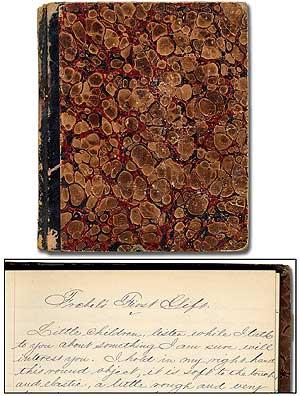 Froebel's First Gift.
Little children, listen while I talk
to you about something I am sure will
interest you. I hold in my right hand
this round object, it is soft to the touch
and elastic, a little rough and very